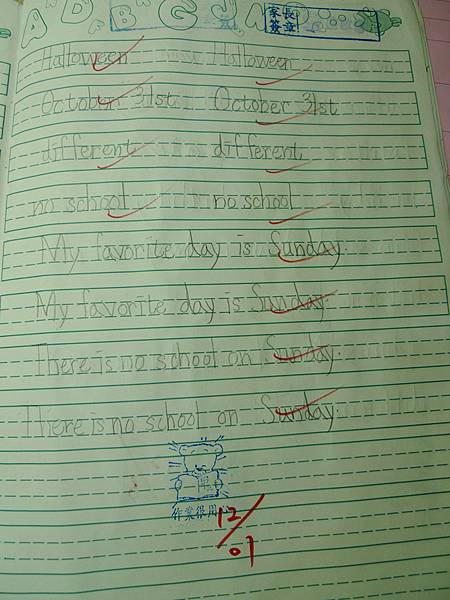 A D B G J A
家長
簽章
Halloween Halloween
October 31st October 31st
different different
no school no school
My favorite day is Sunday.
My favorite day is Sunday.
There is no school on Sunday.
There is no school on Sunday.
作業很用心
12/01